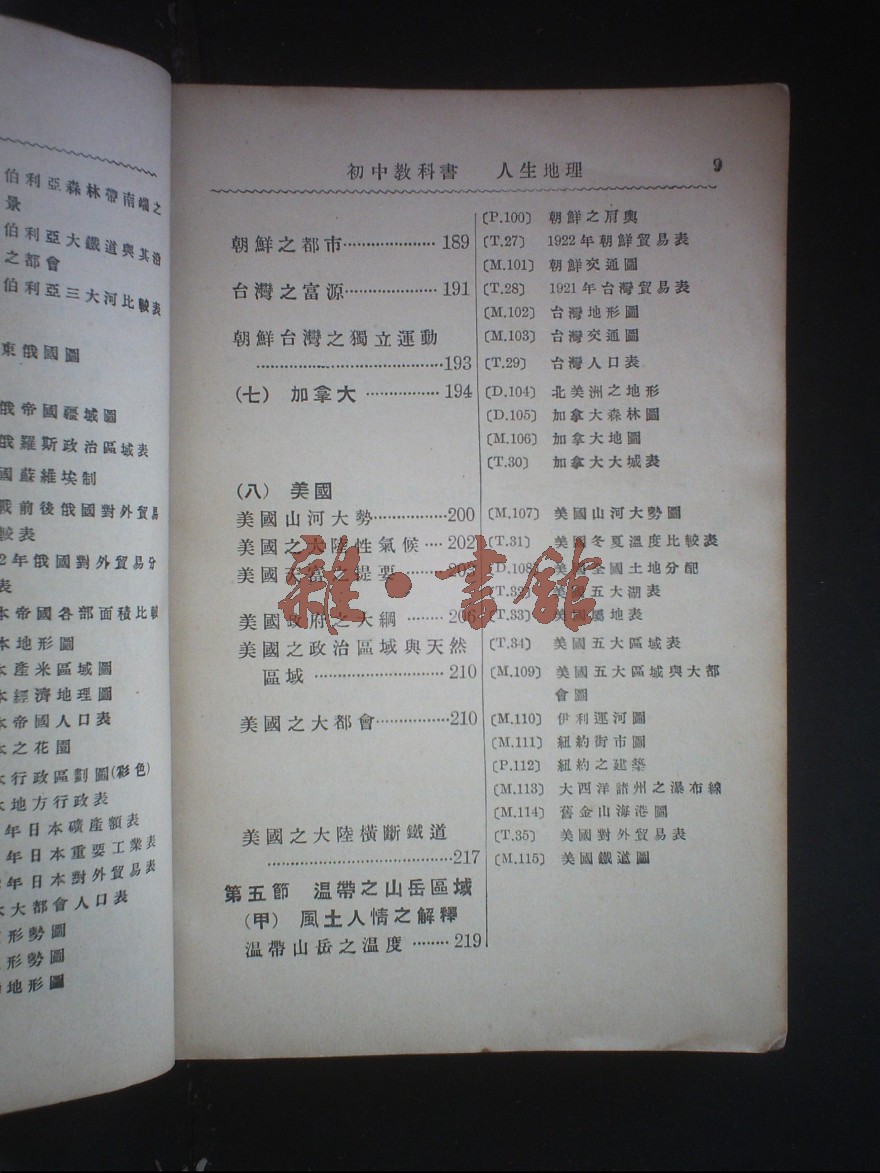 伯利亞森林帶南端之
景
伯利亞大鐵道與其沿
之都會
伯利亞三大河比較表
東俄國圖
俄帝國疆域圖
俄羅斯政治區域表
國蘇維埃制
戰前後俄國對外貿易
較表
2年俄國對外貿易分
表
本帝國各部面積比較
本地形圖
本產米區域圖
本經濟地理圖
本帝國人口表
本之花園
本行政區劃圖(彩色)
本地方行政表
年日本礦產額表
年日本重要工業表
年日本對外貿易表
本大都會人口表
形勢圖
形勢圖
地形圖
初中教科書 人生地理 9
朝鮮之都市………………… 189
台灣之富源………………… 191
朝鮮台灣之獨立運動
……………………………193
(七) 加拿大 …………… 194
(八) 美國
美國山河大勢……………200
美國之大陸性氣候 … 202
美國天富之提要 …… 203
美國政府之大綱 ……… 206
美國之政治區域與天然
區域 ……………………… 210
美國之大都會……………210
美國之大陸橫斷鐵道
………………………………217
第五節 溫帶之山岳區域
(甲) 風土人情之解釋
溫帶山岳之溫度 ……… 219
〔P.100〕 朝鮮之肩輿
〔T.27〕 1922年朝鮮貿易表
〔M.101〕 朝鮮交通圖
〔T.28〕 1921年台灣貿易表
〔M.102〕 台灣地形圖
〔M.103〕 台灣交通圖
〔T.29〕 台灣人口表
〔D.104〕 北美洲之地形
〔D.105〕 加拿大森林圖
〔M.106〕 加拿大地圖
〔T.30〕 加拿大大城表
〔M.107〕 美國山河大勢圖
〔T.31〕 美國冬夏溫度比較表
〔D.108〕 美國全國土地分配
美國五大湖表
〔T.33〕 美國屬地表
〔T.34〕 美國五大區域表
〔M.109〕 美國五大區域與大都
會圖
〔M.110〕 伊利運河圖
〔M.111〕 紐約街市圖
〔P.112〕 紐約之建築
〔M.113〕 大西洋諸州之瀑布線
〔M.114〕 舊金山海港圖
〔T.35〕 美國對外貿易表
〔M.115〕 美國鐵道圖
雜·書館